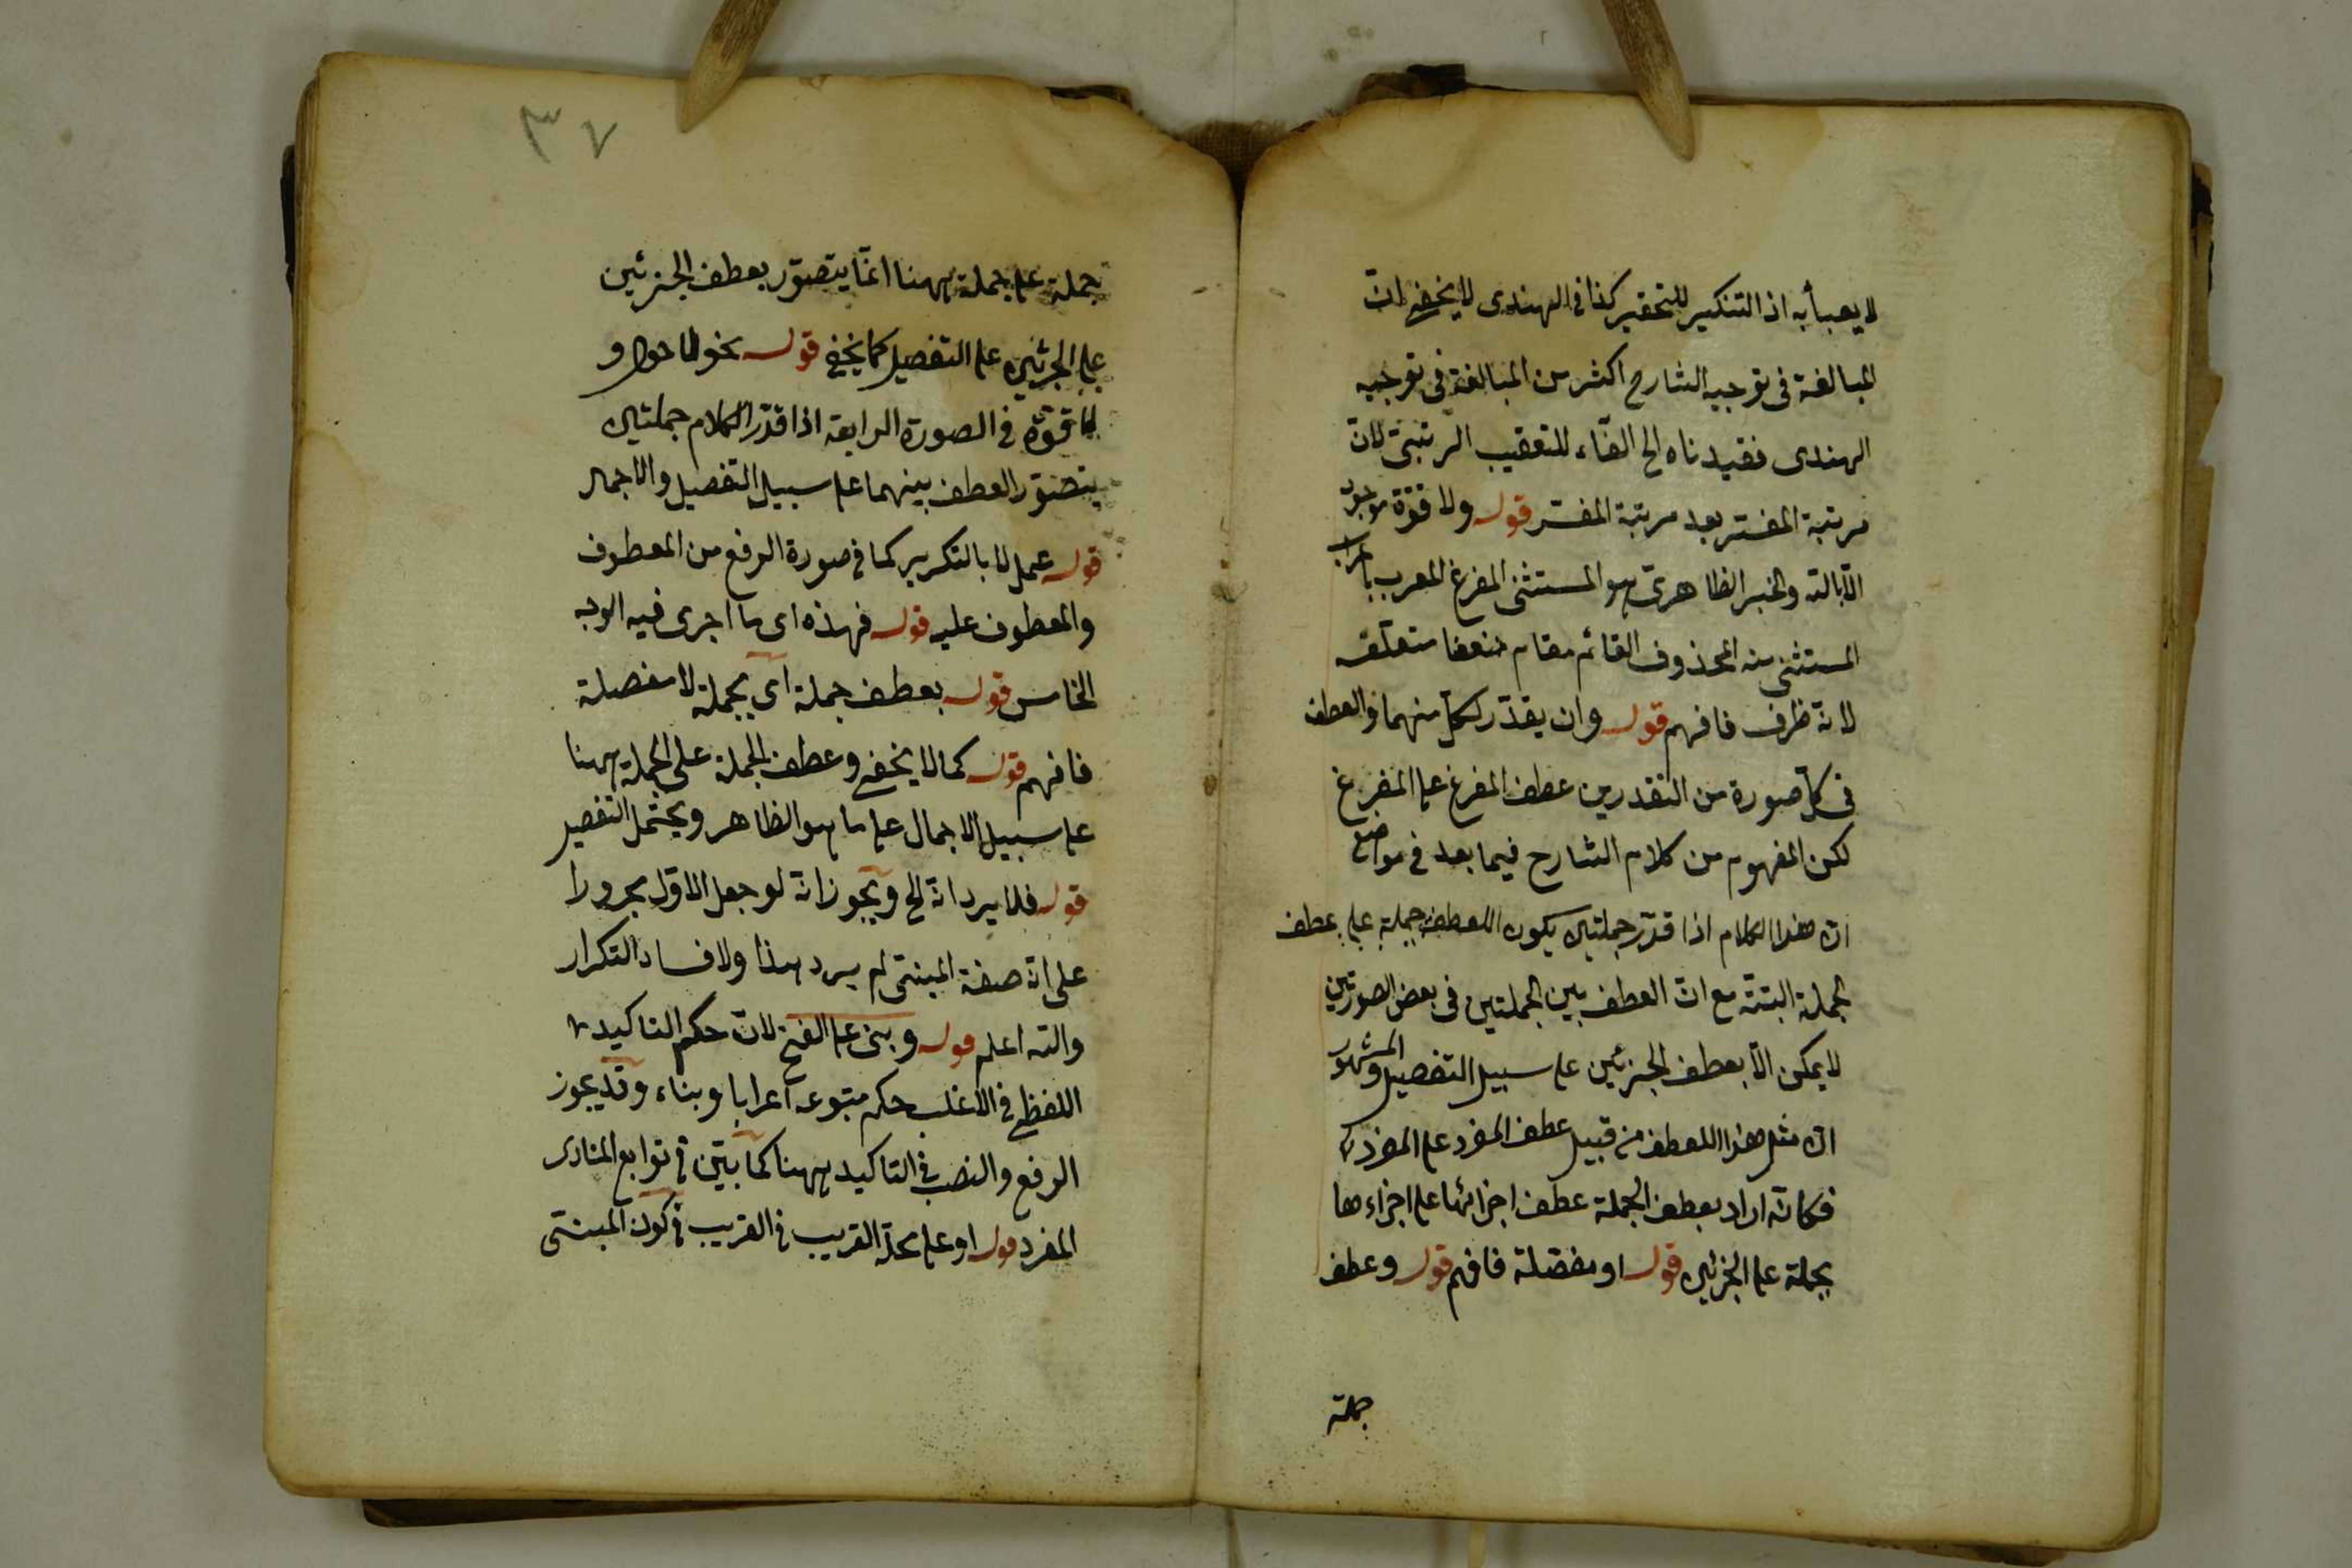 لا يعبأ به اذ التنكير للتحقير كذا في الهندى لا يخفى ان
المبالغة فى توجيه الشارح اكثر من المبالغة فى توجيه
الهندى فقيدناه الخ الفاء للتعقيب الرتبىّ لانّ
مرتبة المفسّر بعد مرتبة المفسّر قوله ولا قوّة موجود
الّا بالله والخبر الظاهرىّ هو المستثنى المفرغ المعرب باعراب
المستثنى منه المحذوف القائم مقام متعلّقه
لانّه ظرف فافهم قوله وان يقدّر لكلّ منهما والعطف
فى كلّ صورة من التقديرين عطف المفرغ على المفرغ
لكن المفهوم من كلام الشارح فيما بعد فى مواضع
انّ هذا الكلام اذا قدّر جملتين يكون العطف جملة على عطف
الجملة البتّة مع انّ العطف بين الجملتين فى بعض الصورتين
لا يمكن الّا بعطف الجزئين على سبيل التفصيل والمشهور
انّ مثل هذا العطف من قبيل عطف المفرد على المفرد
فكانّه اراد بعطف الجملة عطف اجزائها على اجزاءها
مجملة على الجزئين قوله او مفصّلة فافهم قوله وعطف
جملة
٣٧
جملة على جملة ههنا انّما يتصوّر بعطف الجزئين
على الجزئين على التفصيل كما يخفى قوله نحو لا حول و
لا قوّة فى الصورة الرابعة اذا قدّر الكلام جملتين
يتصوّر العطف بينهما على سبيل التفصيل والاجمال
قوله عمل لا بالتكرير كما فى صورة الرفع من المعطوف
والمعطوف عليه قوله فهذه اى ما اجرى فيه الوجه
الخامس قوله بعطف جملة اى مجملة لا مفصلة
فافهم قوله كما لا يخفى وعطف الجملة على الجملة ههنا
على سبيل الاجمال على ما هو الظاهر ويحتمل التفصيل
قوله فلا يرد انّه الخ ويجوز انّه لو جعل الاوّل مجرورا
على انّه صفة المبنىّ لم يرد هذا ولا فساد التكرار
والله اعلم قوله وبنى على الفتح لانّ حكم التاكيد
اللفظى فى الاغلب حكم متبوعه اعرابا وبناء وقد يجوز
الرفع والنصب فى التاكيد ههنا كما بيّن فى توابع المنادى
المفرد قوله او على محلّه القريب فى القريب فى كون المبنىّ